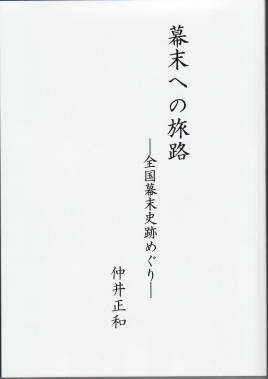 幕末への旅路
―全国幕末史跡めぐり―
仲井正和